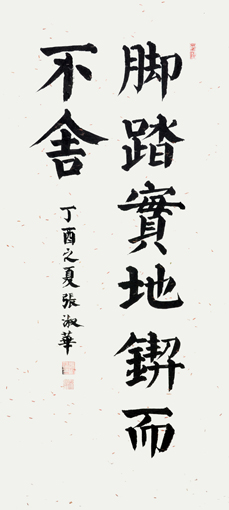 脚踏實地鍥而
不舍
丁酉之夏張淑華